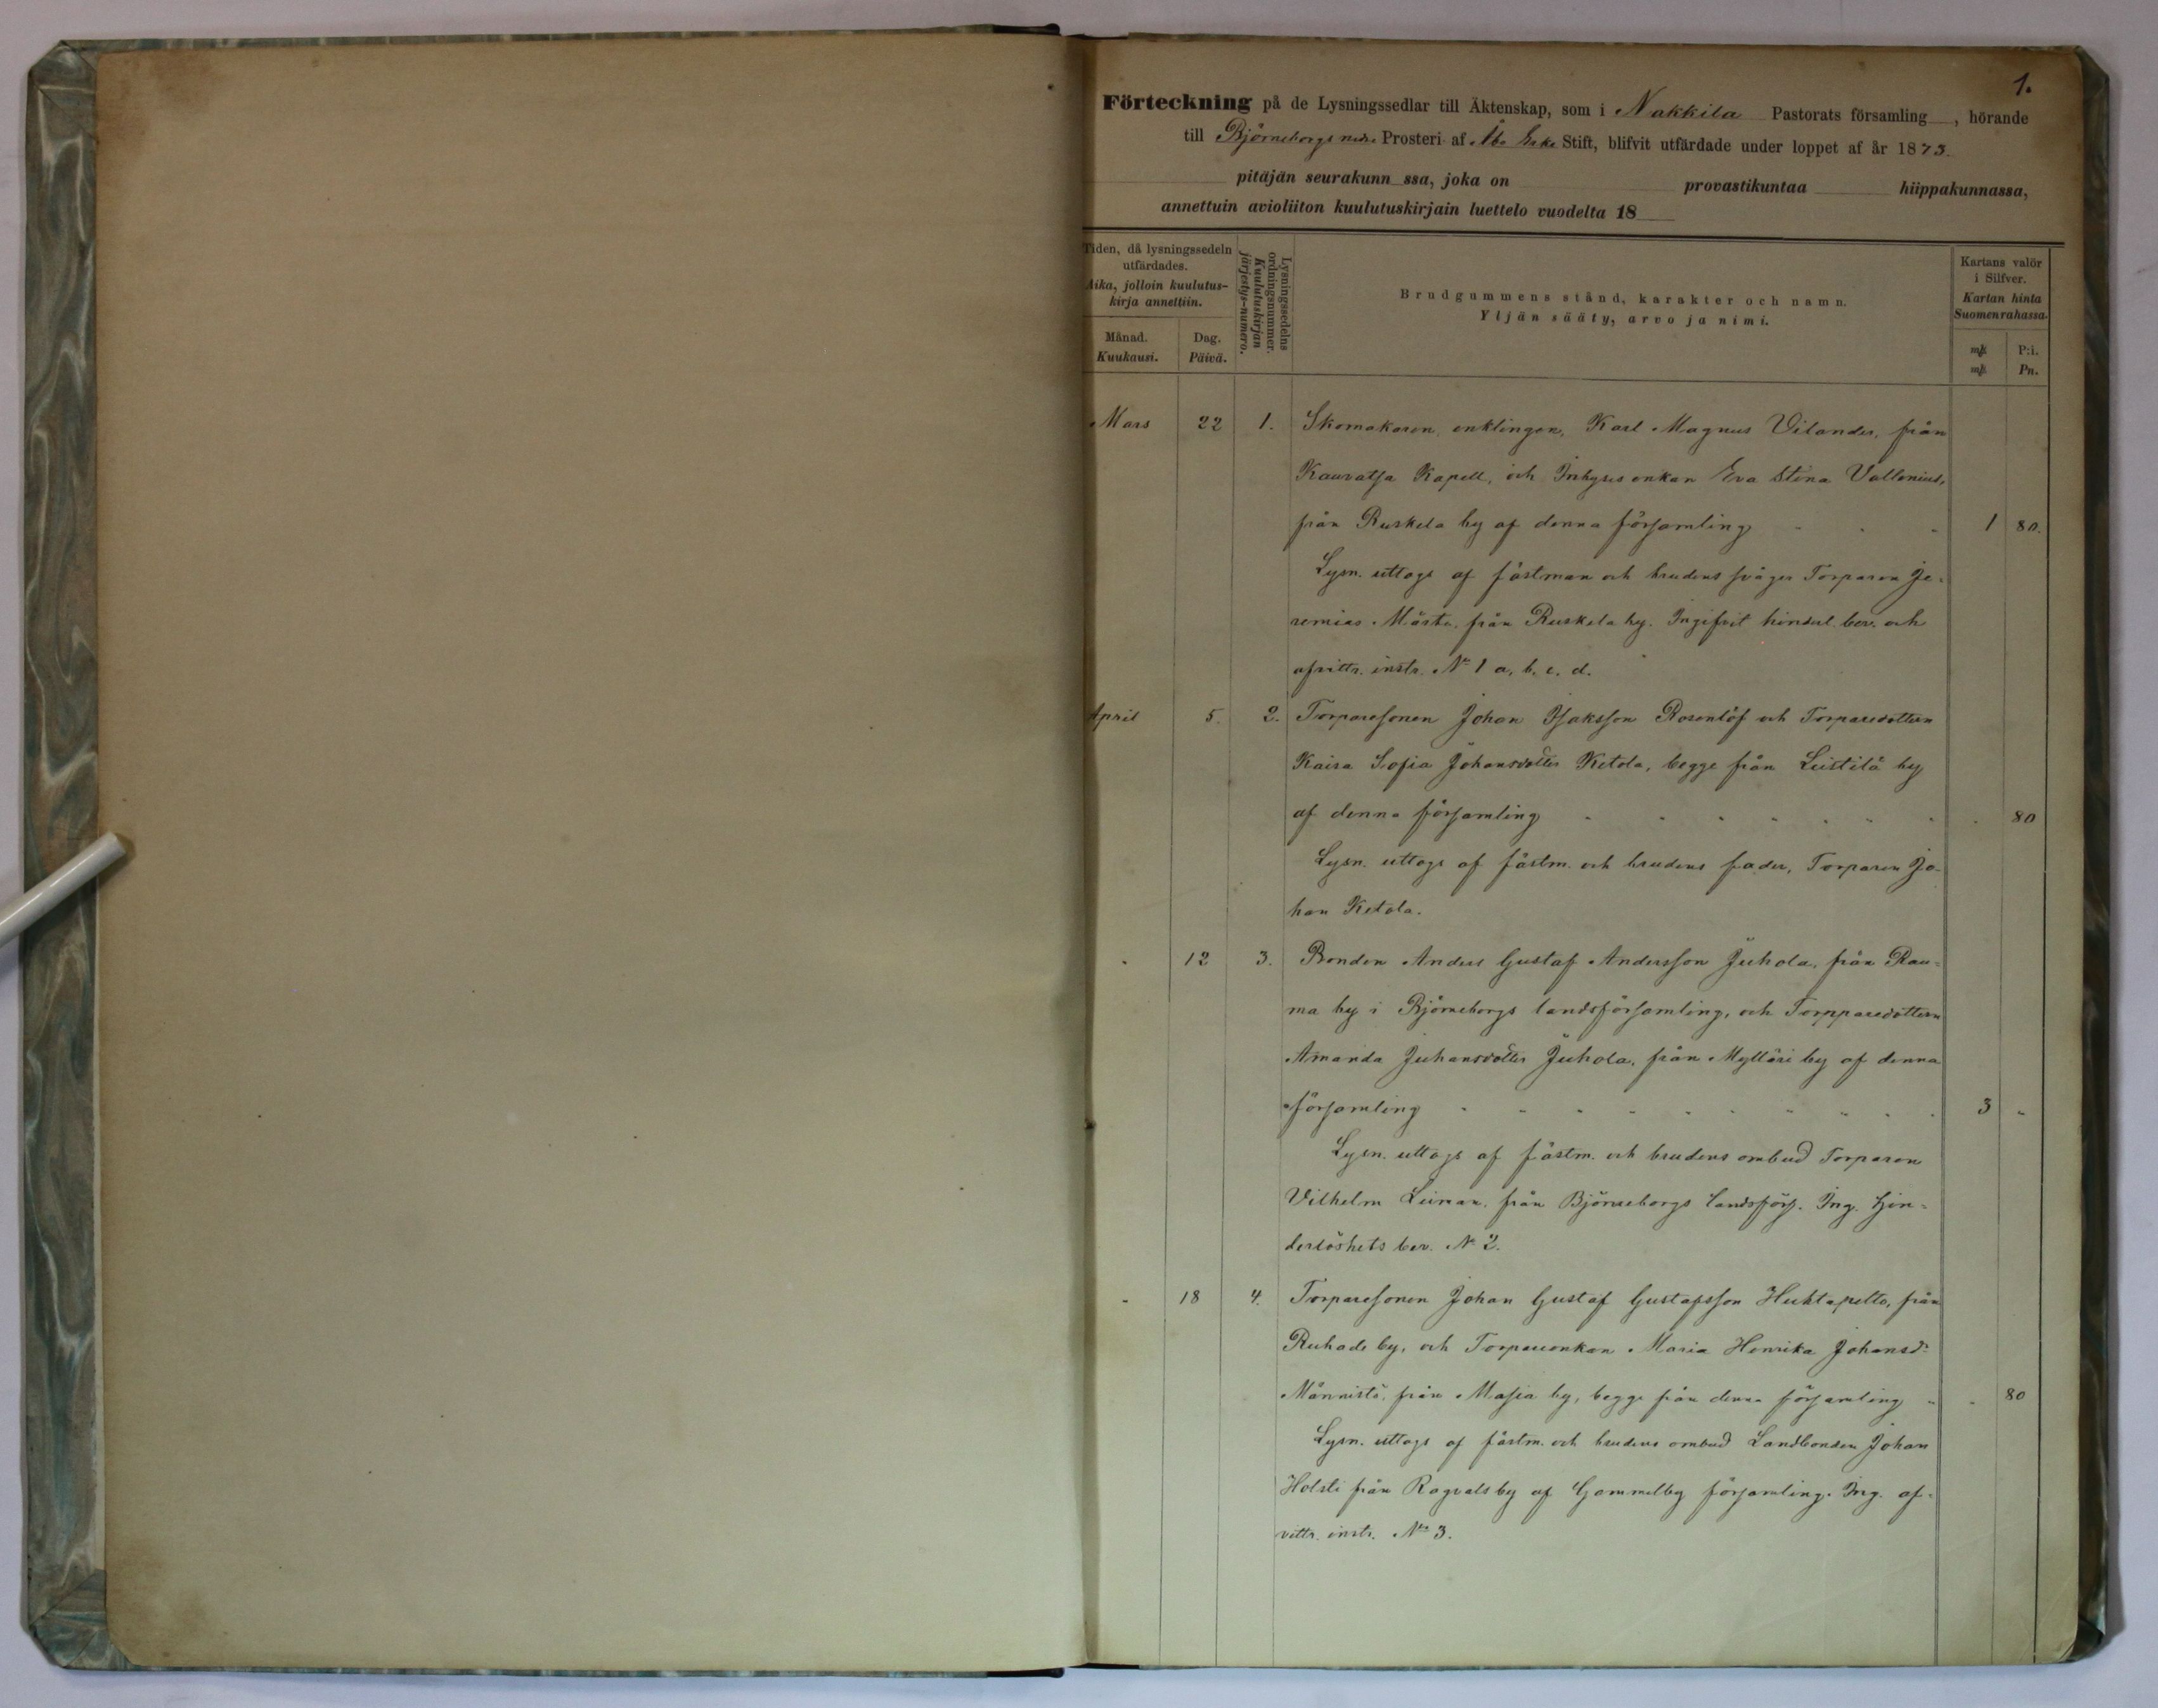 1.
Förteckning på de Lysningssedlar till Äktenskap, som i Nakkila Pastorats församling, hörande
till Björneborgs nedre Prosteri af Åbo Erke Stift, blifvit utfärdade under loppet af år 1873.
pitäjän seurakunn ssa, joka on provastikuntaa hiippakunnassa,
annettuin avioliiton kuulutuskirjain luettelo vuodelta 18
Tiden, då lysningssedeln utfärdades.
Aika, jolloin kuulutuskirja annettiin.
Månad. Kuukausi.
Dag. Päivä.
Lysningssedelns ordningsnummer.
Kuulutuskirjan järjestys-numero.
Brudgummens stånd, karakter och namn.
Yljän sääty, arvo ja nimi.
Kartans valör i Silfver.
Kartan hinta Suomenrahassa.
mk P:i.
mk Pn.
Mars 22 1. Skomakaren, enklingen, Karl Magnus Vilander, från
Kauvatsa Kapell, och Inhyses enkan Eva Stina Vallenius,
från Ruskela by af denna församling 1 80.
Lysn. uttogs af fästman och brudens svåger Torparen Je-
remias Märta, från Ruskela by. Ingifvit hinderl. bev. och
afvittr. instr. No 1 a, b, c, d.
April 5. 2. Torparesonen Johan Isaksson Rosenlöf och Torparedottern
Kaisa Sofia Johansdotter Ketola, begge från Leistilä by
af denna församling 80
Lysn. uttogs af fästm. och brudens fader, Torparen Jo-
han Ketola.
" 12 3. Bonden Anders Gustaf Andersson Juhola, från Rau-
ma by i Björneborgs landsförsamling, och Torpparedottern
Amanda Juhansdotter Juhola, från Mylläri by af denna
församling 3 "
Lysn. uttogs af fästm. och brudens ombud Torparen
Vilhelm Leinan, från Björneborgs landsförs. Ing. hin-
derlöshets bev. No 2.
" 18 4. Torparesonen Johan Gustaf Gustafsson Huhtapelto, från
Ruhade by, och Torpareenkan Maria Henrika Johansd:r
Männistö, från Masia by, begge från denna församling " 80
Lysn. uttogs af fästm. och brudens ombud Landbonden Johan
Holsti från Ragvalsby af Gammelby församling. Ing. af-
vittr. instr. No 3.